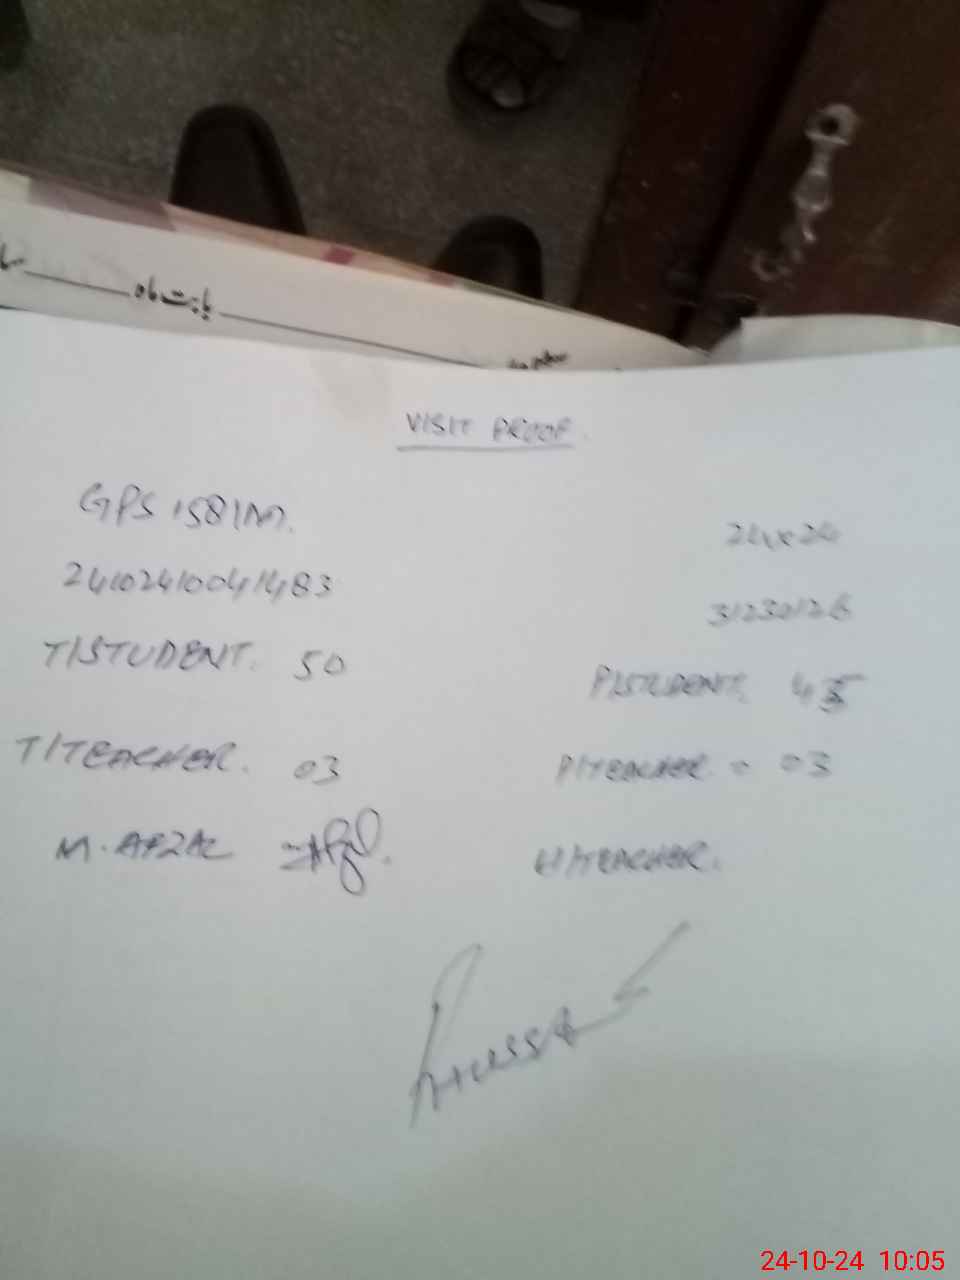 بابت ماہ
VISIT PROOF.
GPS 158/M.
24102410041483
31230126
T/STUDENT. 50
P/STUDENT. 45
T/TEACHER. 03
P/TEACHER = 03
M. AFZAL
H/TEACHER.
24-10-24 10:05